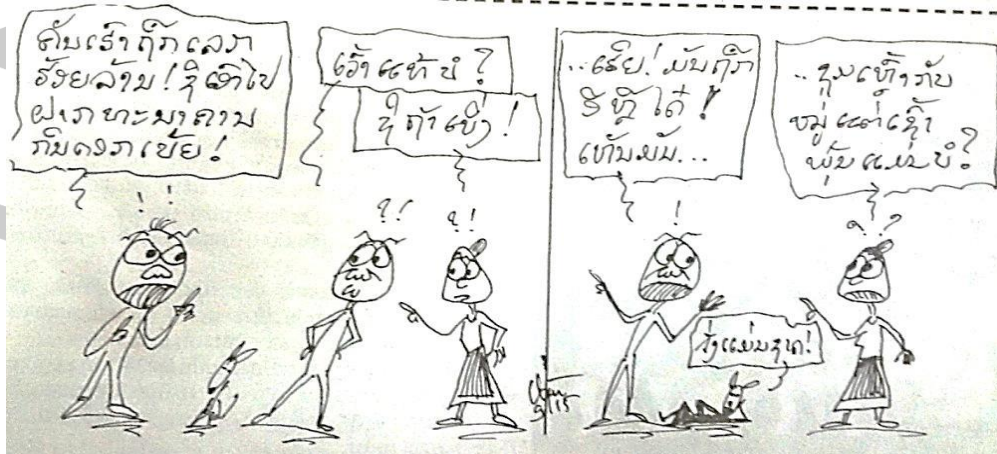 ຄັນເຮົາຖືກເລກ
ຮ້ອຍລ້ານ! ຊິເອົາໄປ
ຝາກທະນາຄານ
ກິນດອກເບ້ຍ!
ເວົ້າແທ້ບໍ?
ຊິຖ້າເບິ່ງ!
..ເຮີຍ! ມັນຖືກ
ອີຫຼີໄດ໋!
ເຫັນມັນ...
..ກັບ
ໝູ່ແຕ່ເຊົ້າ
ພຸ້ນແມ່ນບໍ?
9/15